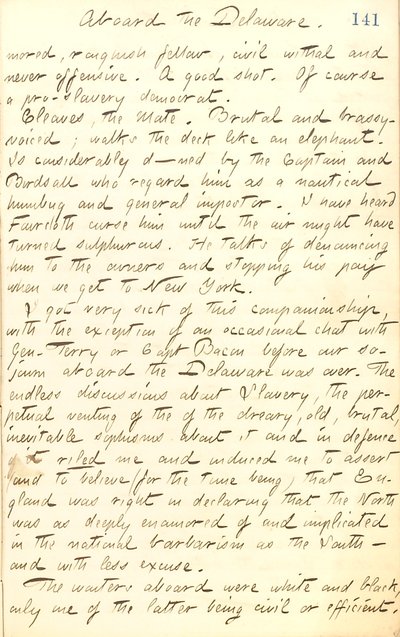 Aboard the Delaware. 141
mored, roguish fellow, civil withal and
never offensive. A good shot. Of course
a pro-slavery democrat.
Cleaves, the Mate. Brutal and brassy-
voiced; walks the deck like an elephant.
Is considerably d—ned by the Captain and
Birdsall who regard him as a nautical
humbug and general impostor. I have heard
Faircloth curse him until the air might have
turned sulphurous. He talks of denouncing
him to the owners and stopping his pay
when we get to New York.
I got very sick of this companionship,
with the exception of an occasional chat with
Gen- Terry or Capt Bacon before our so-
journ aboard the Delaware was over. The
endless discussions about Slavery, the per-
petual venting of the of the dreary, old, brutal,
inevitable sophisms about it and in defence
of it riled me and induced me to assert
and to believe (for the time being, that En-
gland was right in declaring that the North
was as deeply enamored of and implicated
in the national barbarism as the South —
and with less excuse.
The waiters aboard were white and black,
only one of the latter being civil or efficient.